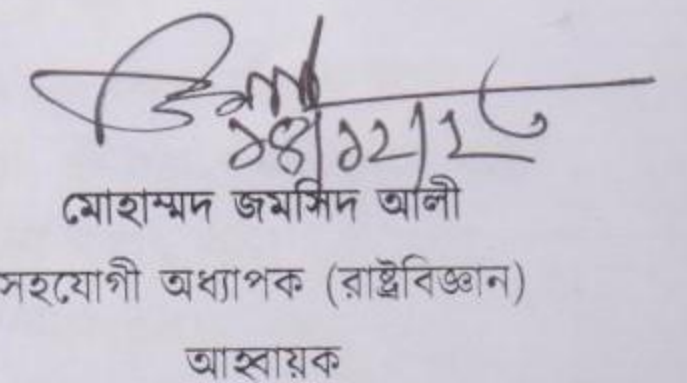 মোহাম্মদ জমসিদ আলী
সহযোগী অধ্যাপক (রাষ্ট্রবিজ্ঞান)
আহ্বায়ক